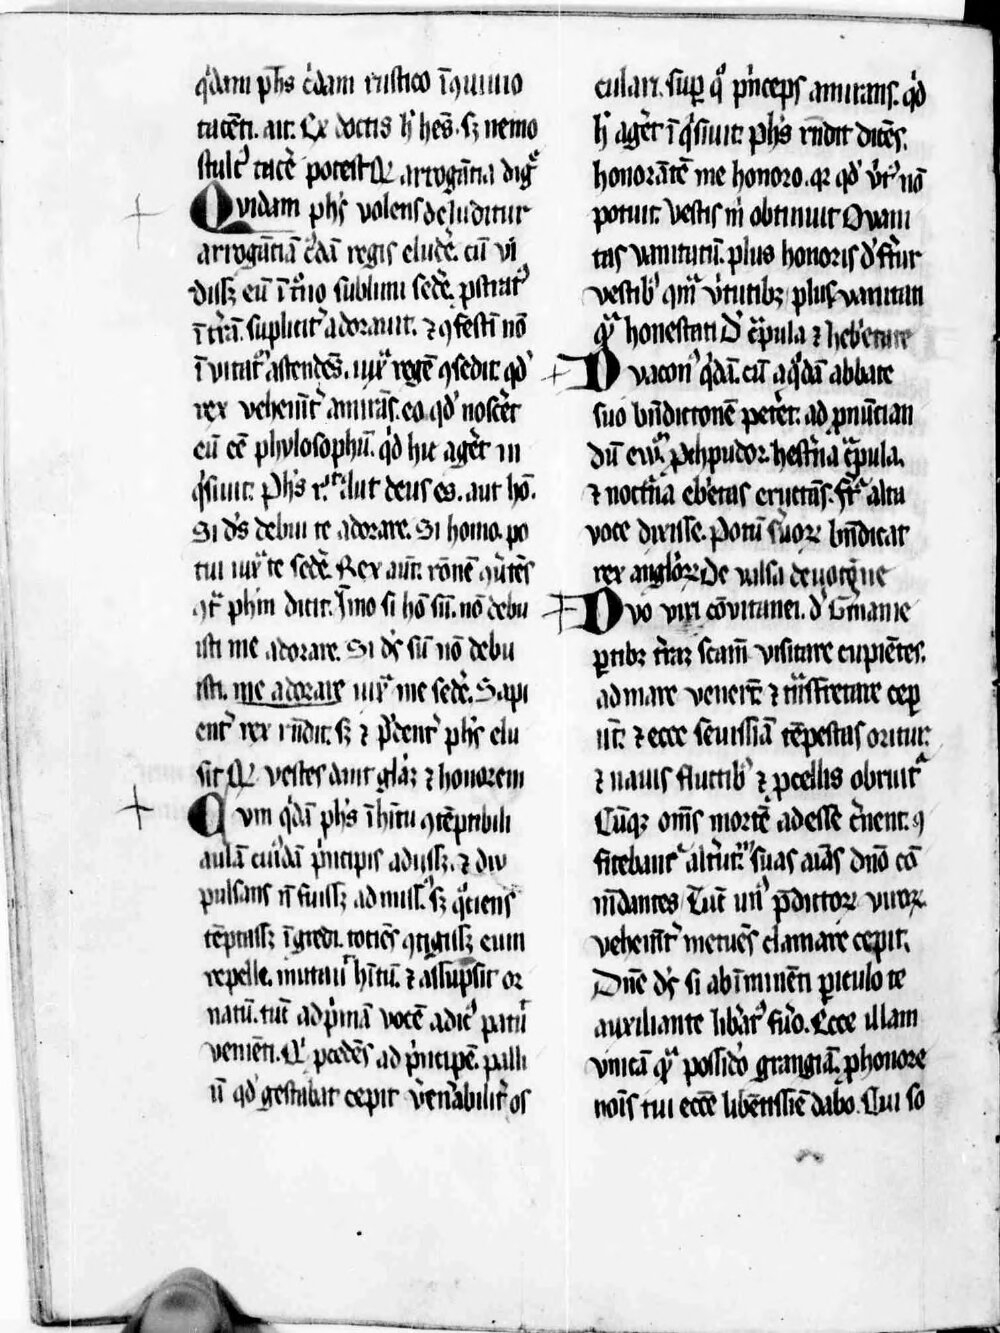 q̇dam ph̄s c̄dam rustico ī quiuio
tacēti. ait. Ex doctis h̄ hēs. sꝫ nemo
stult᷒ tac̄e potest Qͥ arrogātia dig᷒
Quidam ph̄s volens deluditur
arrogātiā c̄dā regis elud̄e. cū vi
dissꝫ eū ī t̄no sublimi sed̄e. p̄strat᷒
ī t̄rā. supliciť adorauit. ⁊ ꝯfestī nō
ī uitat᷒ ascendēs. iux̄ regē ꝯsedit. qd᷒
rex vehem̄t̄ amirās. eo qd᷒ nosc̄et
eū eē phylosophū. q̇d hic aḡet in
q̇siuit. Ph̄s r̄. Aut deus es. aut hō.
Si d̄s debui te adorare. Si homo. po
tui iux̄ te sed̄e. Rex aūt. rōnē
ꝯt̄ ph̄m dicit. Imo si hō sū. nō debu
isti me adorare. Si d̄s sū nō debu
isti. me adorare iux̄ me sed̄e. Sapi
ent̄ rex r̄ndit. sꝫ ⁊ p̄dent̄ ph̄s elu
sit Qͥ vestes dant glā ⁊ honorem
Cum q̇dā ph̄s ī hītu ꝯtēptibili
aulā cuidā p̄ncipis adissꝫ. ⁊ diu
pulsans n̄ fuissꝫ admiss᷒. sꝫ q̇tiens
tēptassꝫ īgredi. totiēs ꝯtigissꝫ eum
repelle. mutauit hītū. ⁊ assūpsit or
natū. tūc ad p̄mā vocē adit᷒ patuit
venienti. Qͥ p̄cedēs ad p̄ncipē. palli
ū qd᷒ gestabat cepit ven̄abilit̄ os
culari. sup̄ q̊ p̄nceps amirans. q̇d
h̄ aḡet ī q̇siuit. ph̄s r̄ndit dicēs.
honorātē me honoro. qr qd᷒ v̄t᷒ nō
potuit. vestis m̄ obtinuit O vani
tas vanitatū. plus honoris
vestib᷒ qm̄ v̄tutibꝫ plus vanitati
q̄ honestati D̄ c̄pula ⁊ heb̄etate
Diacon᷒ q̇dā. cū a q̇dā abbate
suo bn̄dictionē pet̄et. ad p̄nūtian
dū ew̄. hest̄na c̄pula.
⁊ noct̄na eb̄etas eructās. alta
voce dixisse. Potū suoꝝ bn̄dicat
rex angloꝝ De valsa deuotione
Duo viri cōuitanei. d̄ Ḡmanie
p̄tibꝫ t̄rā scām visitare cupiētes.
ad mare vener̄t ⁊ t̄nsfretare cep̄
ūt. ⁊ ecce seuissīa tēpestas oritur.
⁊ nauis fluctib᷒ ⁊ p̄cellis obruit̄
Cūqꝫ om̄s mortē adesse c̄nent. ꝯ
fitebant̄ alt̄ut̄ suas aīas dn̄o cō
m̄dantes Tūc un᷒ p̄dictoꝝ viroꝝ.
vehem̄t̄ metuēs clamare cepit.
Dn̄e d̄s si ab īminēti p̄iculo te
auxiliante lib̄at᷒ fūo. Ecce illam
vnicā q̄ possideo grangiā. p̄ honore
noīs tui eccē libētissīe dabo. Cui so